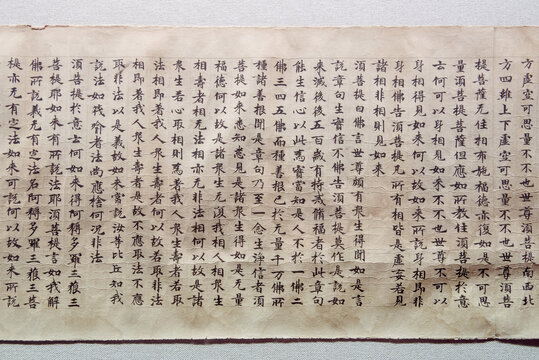 方虛空可思量不不也世尊須菩提南西北
方四維上下虛空可思量不不也世尊須菩
提菩薩无住相布施福德亦復如是不可思
量須菩提菩薩但應如所教住須菩提於意
云何可以身相見如来不不也世尊不可以
身相得見如来何以故如来所說身相即非
身相佛告須菩提凡所有相皆是虛妄若見
諸相非相則見如来
須菩提白佛言世尊頗有衆生得聞如是言
說章句生實信不佛告須菩提莫作是說如
来滅後後五百歲有持戒脩福者於此章句
能生信心以此為實當知是人不於一佛二
佛三四五佛而種善根已於无量千万佛所
種諸善根聞是章句乃至一念生淨信者須
菩提如来悉知悉見是諸衆生得如是无量
福德何以故是諸衆生无復我相人相衆生
相壽者相无法相亦无非法相何以故是諸
衆生若心取相則為著我人衆生壽者若取
法相即著我人衆生壽者何以故若取非法
相即著我人衆生壽者是故不應取法不應
取非法以是義故如来常說汝等比丘知我
說法如筏喻者法尚應捨何況非法
須菩提於意云何如来得阿耨多羅三藐三
菩提耶如来有所說法耶須菩提言如我解
佛所說義无有定法名阿耨多羅三藐三菩
提亦无有定法如来可說何以故如来所說